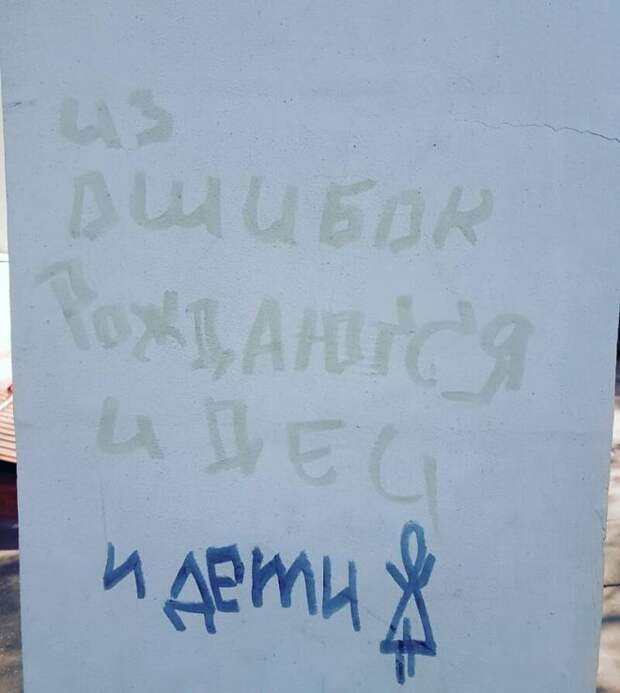 из
ошибок
Рождаются
идеи
и дети